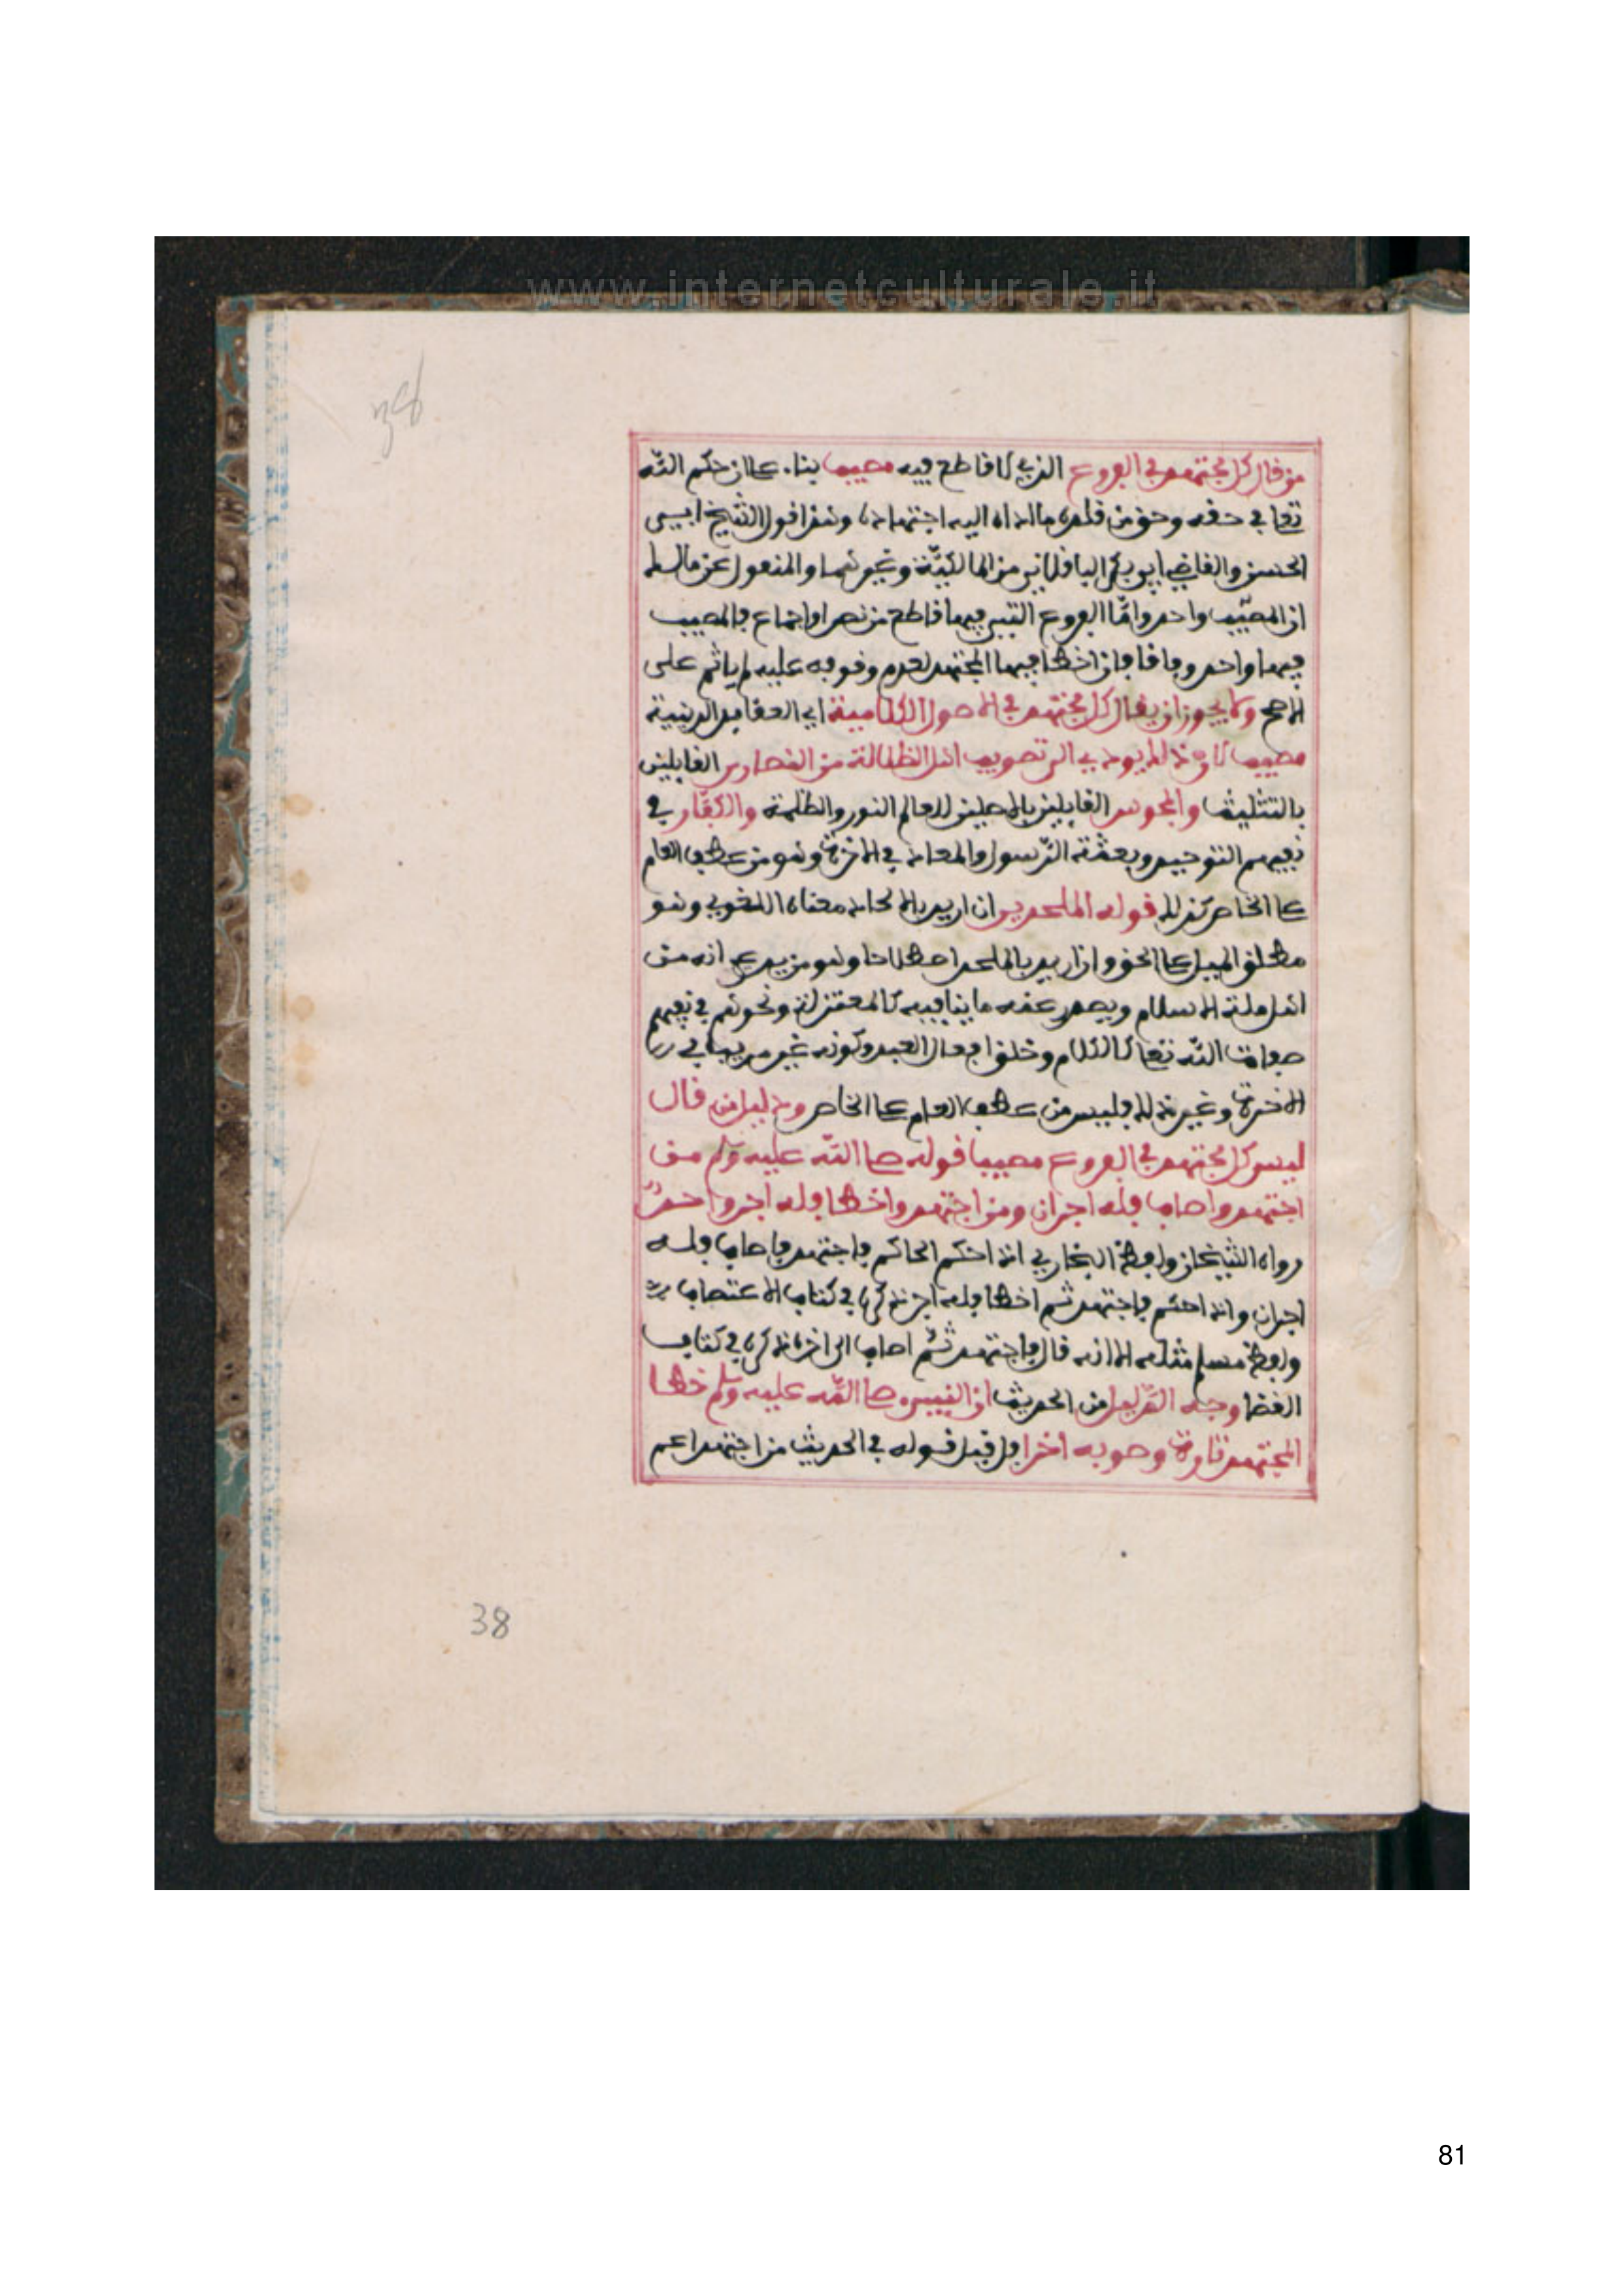 www.internetculturale.it
38
من قال كل مجتهد في الفروع الذي لا قاطع فيه مصيب بناء على ان حكم الله
تعلى في حقه وحق من قلده ما اداه اليه اجتهاده وهذا قول الشيخ ابي
الحسن والقاضي ابي بكر الباقلاني من المالكية وغيرهما والمنقول عن مالك
ان المصيب واحد واما الفروع التي فيها قاطع من نص او اجماع فالمصيب
فيها واحد وفاقا فان اخطا فيها المجتهد لعدم وقوفه عليه لم ياثم على
الاصح ولا يجوز ان يقال كل مجتهد في الاصول الكلامية اي العقايد الدينية
مصيب لان ذلك يودي الى تصويب اهل الضلالة من النصارى القايلين
بالتثليث والمجوس القايلين بالاصلين للعالم النور والظلمة والكفار في
نفيهم التوحيد وبعثة الرسول والمعاد في الاخرة وهو من عطف العام
على الخاص كذلك قوله الملحدين ان اريد بالالحاد معناه اللغوي وهو
مطلق الميل عن الحق وان اريد بالملحد اصطلاحا وهو من يدعي انه من
اهل ملة الاسلام ويصدر عنه ما ينافيه كالمعتزلة ونحوهم في نفيهم
صفات الله تعلى كالكلام وخلق افعال العبد وكونه غير مريا في
الاخرة وغير ذلك فليس من عطف العام على الخاص ودليل من قال
ليس كل مجتهد في الفروع مصيبا قوله صلى الله عليه وسلم من
اجتهد واصاب فله اجران ومن اجتهد واخطا فله اجر واحد
رواه الشيخان ولفظ البخاري اذا حكم الحاكم فاجتهد فاصاب فله
اجران واذا حكم فاجتهد ثم اخطا فله اجر ذكره في كتاب الاعتصاب
ولفظ مسلم مثله الا انه قال فاجتهد ثم اصاب الى اخره ذكره في كتاب
القضا وجه الدليل من الحديث ان النبي صلى الله عليه وسلم خطا
المجتهد تارة وصوبه اخرا فان قيل قوله في الحديث من اجتهد اعم
38
81